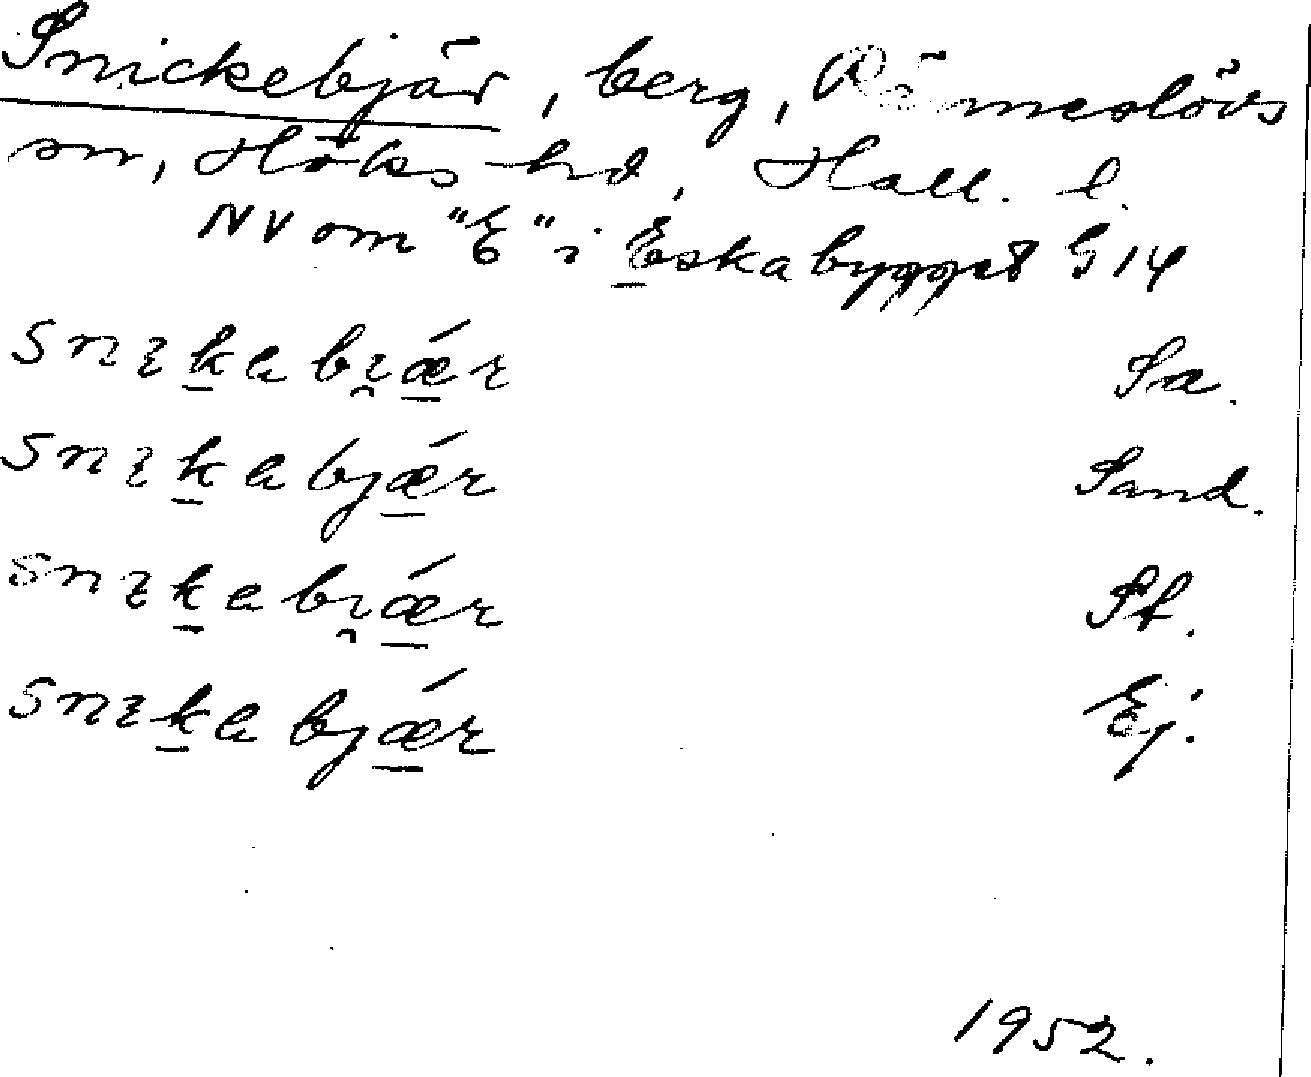 Snickebjär, berg, Ränneslövs
sn, Höks hd, Hall. l.
NV om "E" i Eskabygget G 14
snɪk̲abi̯ǽ̲r Sa.
snɪk̲abjǽ̲r Sand.
snɪk̲abi̯ǽ̲r St.
snɪk̲abjǽ̲r Ej.
1952.